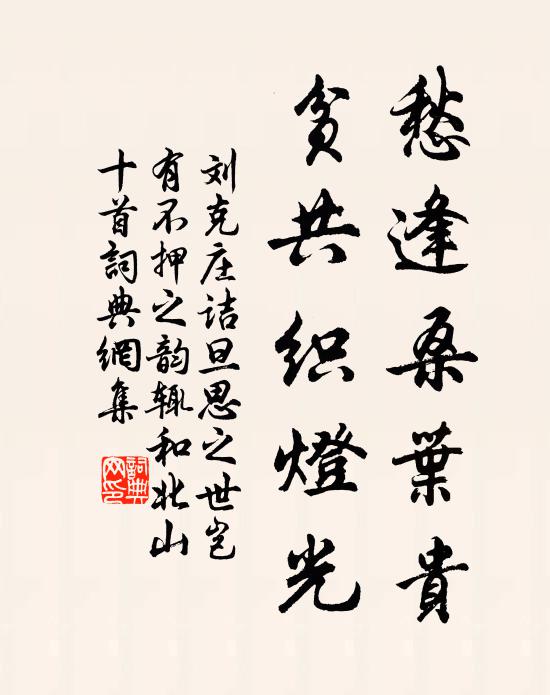 愁逢桑葉貴
貧共织燈光
刘克庄诘旦思之世岂
有不押之韵辄和北山
十首詞典網集
詞典网印